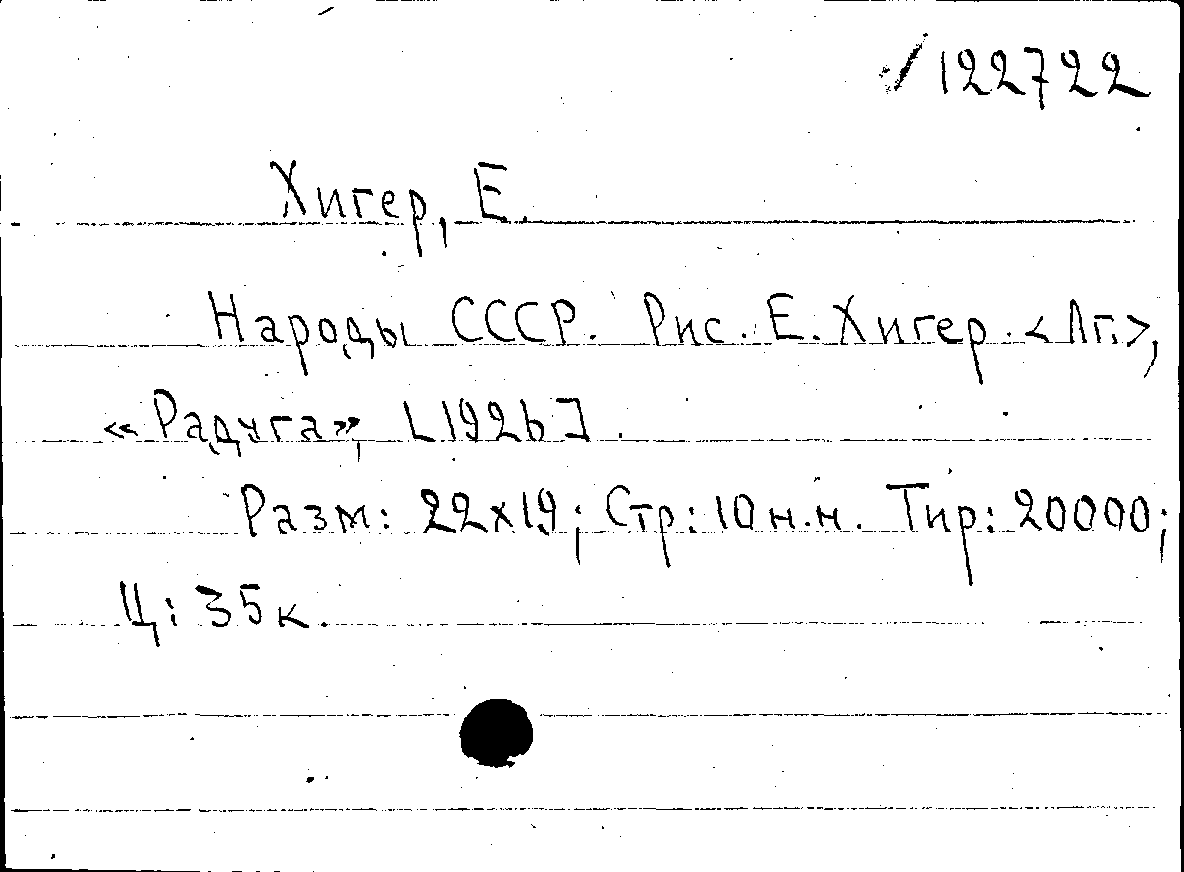 122722
Хигер, Е.
Народы СССР. Рис. Е. Хигер. <Лг.>,
«Радуга», [1926].
Разм: 22х19; Стр: 10 н.н. Тир: 20000;
Ц: 35к.